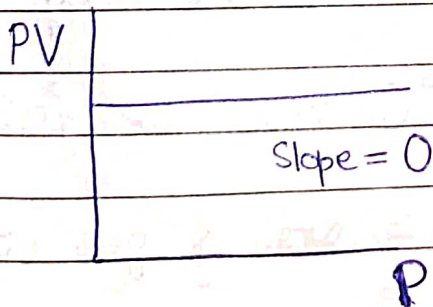 PV
Slope = 0
P